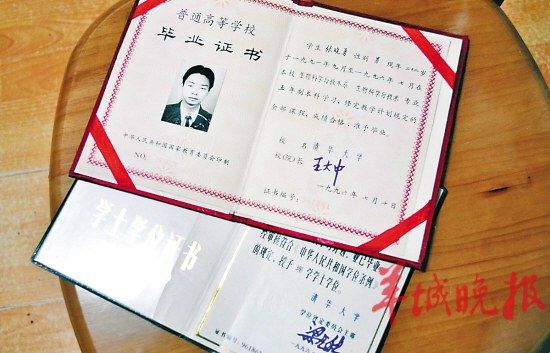 普通高等学校
毕业证书
中华人民共和国国家教育委员会印制
NO.
学生 张晓勇 性别 男 现年二十二岁
于一九九一年九月至一九九六年七月在
本校 生物科学与技术系 生物科学与技术 专业
五年制本科学习，修完教学计划规定的
全部课程，成绩合格，准予毕业。
校名 清华大学
校(院)长 王大中
证书编号：
一九九六年七月十日
学士学位证书
业已毕业
经审核符合《中华人民共和国学位条例》
的规定，授予 理 学学士学位。
清华大学
学位评定委员会主席
证书编号
羊城晚报